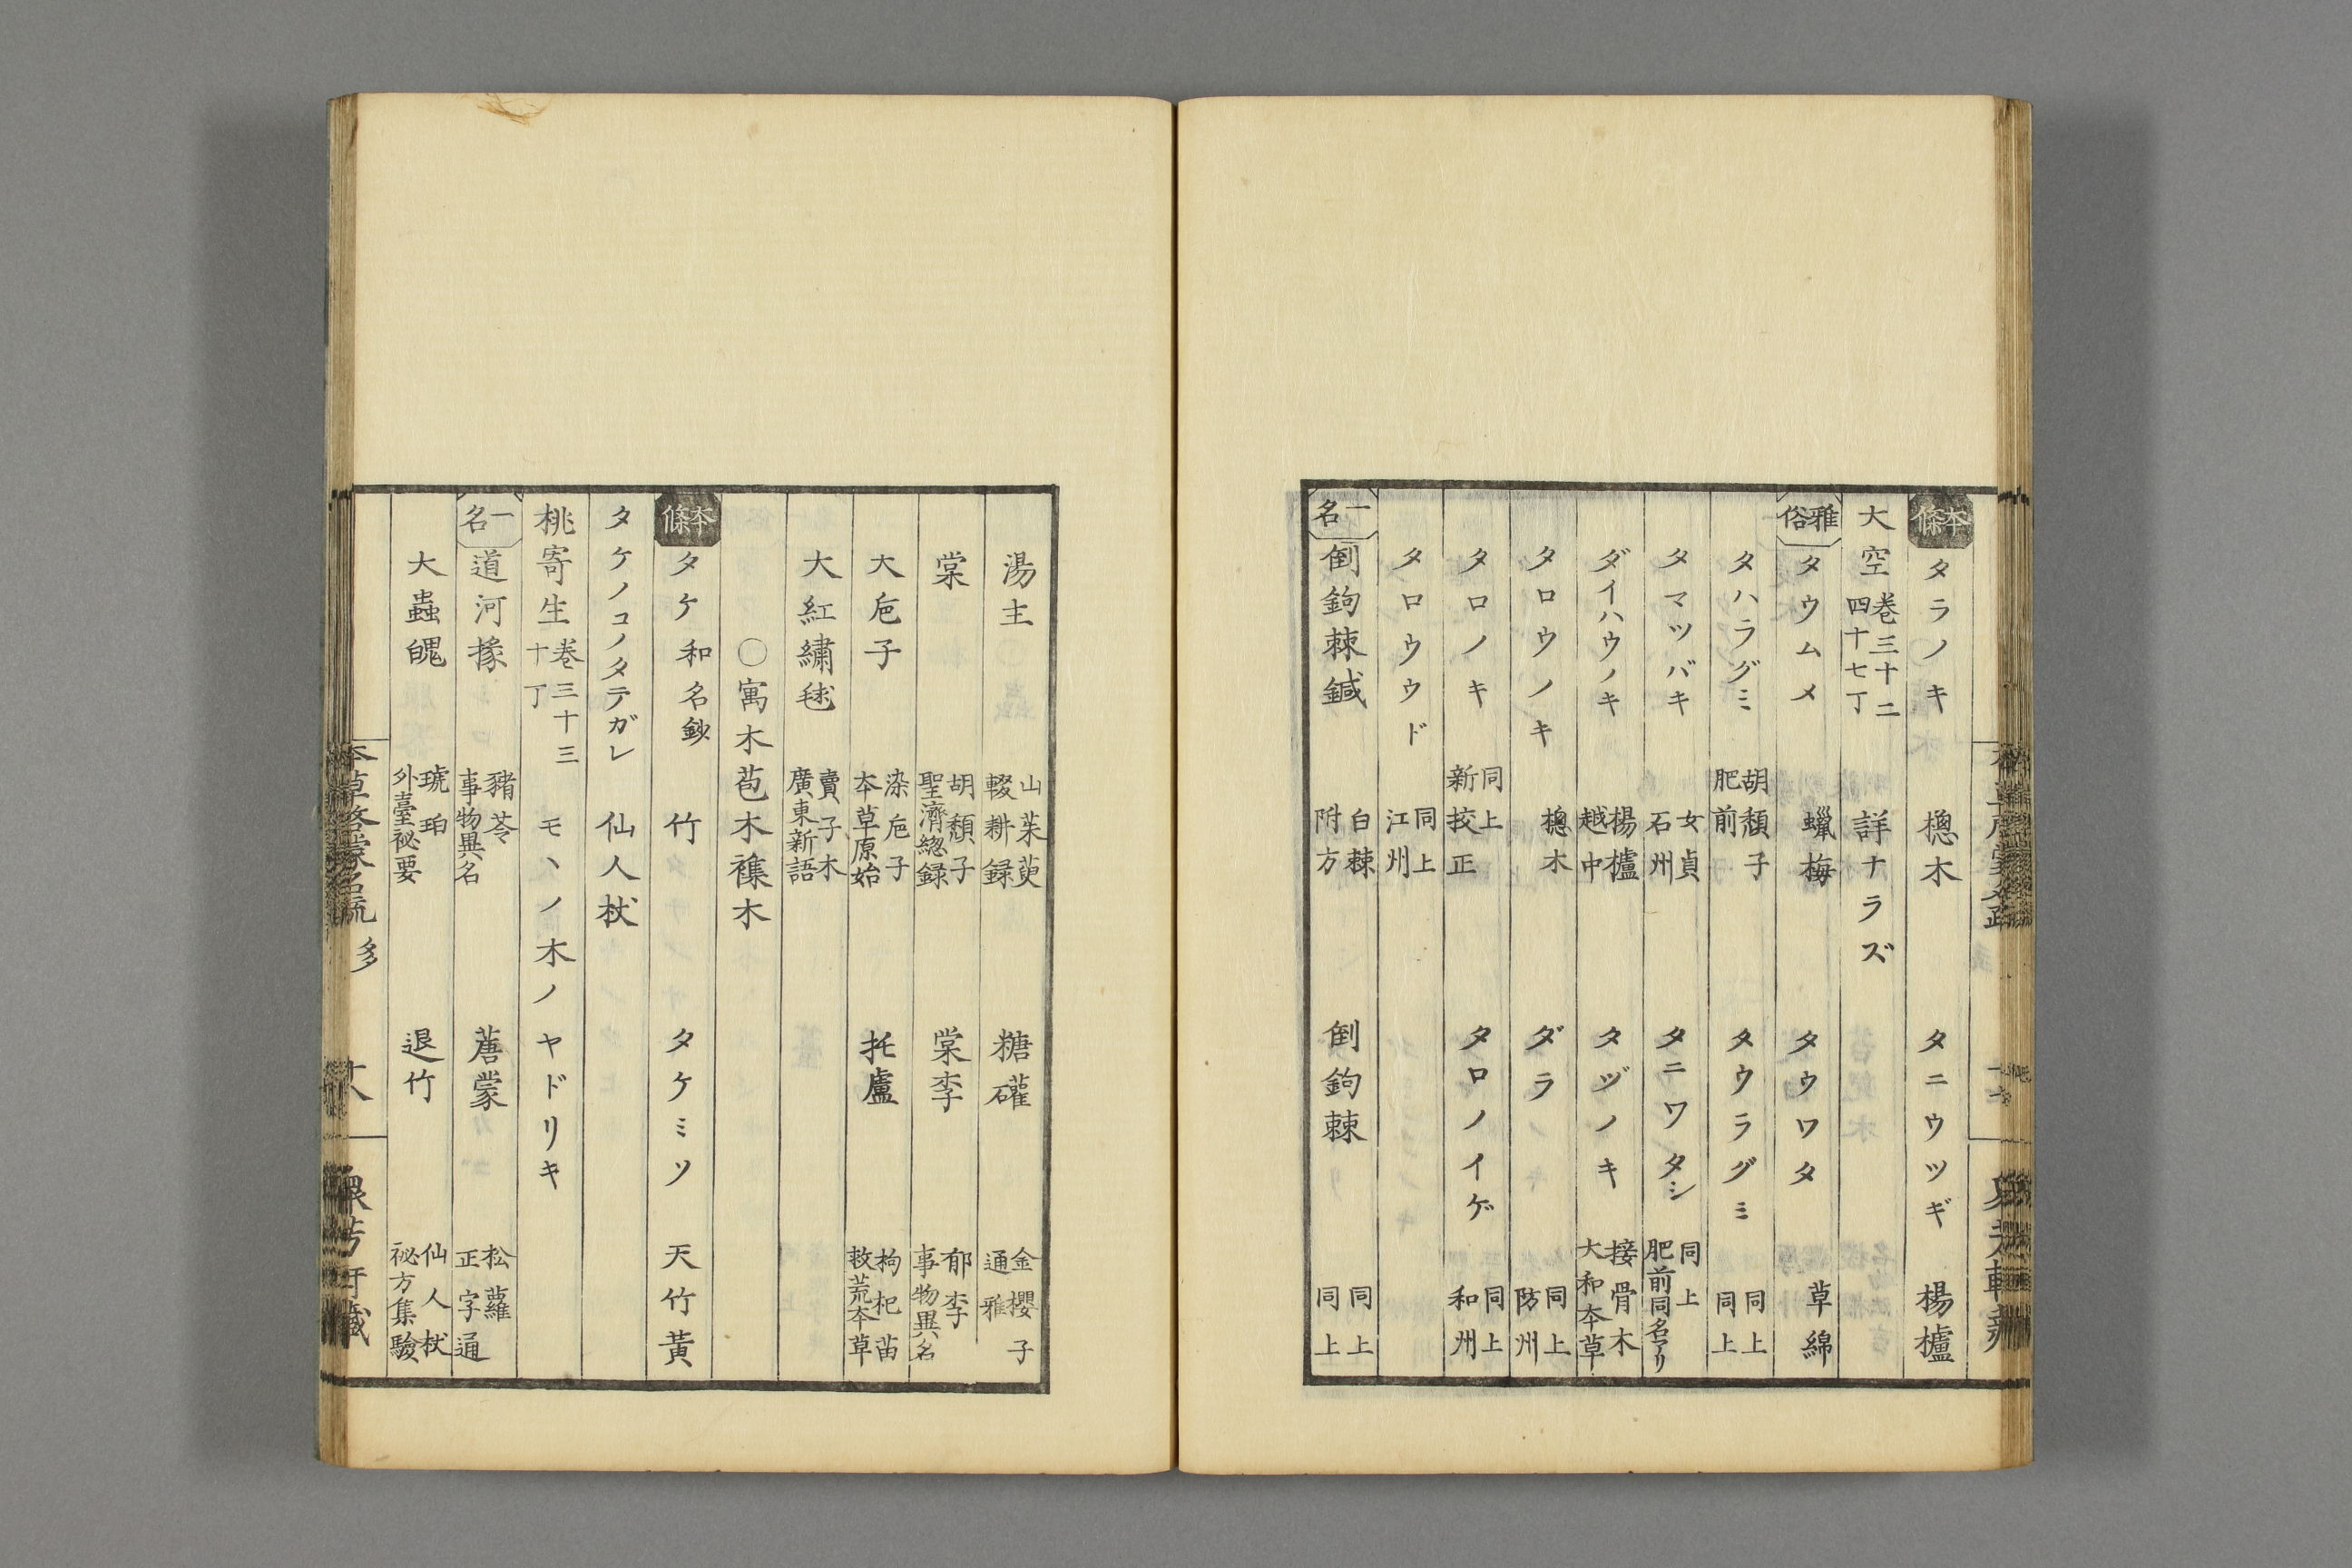 本條 タラノキ 楤木 タニウツギ 楊櫨
大空 巻三十二 四十七丁 詳ナラズ
雅俗 タウムメ 蠟梅 タウワタ 草綿
タハラグミ 胡頽子 肥前 タウラグミ 同上 同上
タマツバキ 女貞 石州 タニワタシ 同上 肥前同名アリ
ダイハウノキ 楊櫨 越中 タヅノキ 接骨木 大和本草
タロウノキ 楤木 ダラ 同上 防州
タロノキ 同上 新挍正 タロノイゲ 同上 和州
タロウウド 同上 江州
一名 倒鉤棘鍼 白棘 附方 倒鉤棘 同上 同上
湯主 山茱萸 輟耕録 糖礶 金櫻子 通雅
棠 胡頽子 聖濟総録 棠李 郁李 事物異名
大巵子 染巵子 本草原始 托盧 枸杞苗 救荒本草
大紅繡毬 賣子木 廣東新語
〇寓木苞木襍木
本條 タケ和名鈔 竹 タケミソ 天竹黃
タケノコノタテガレ 仙人杖
桃寄生 巻三十三 十丁 モヽノ木ノヤドリキ
一名 道河㯌 豬苓 事物異名 蓎蒙 松蘿 正字通
大蟲魄 琥珀 外臺祕要 退竹 仙人杖 祕方集驗
多